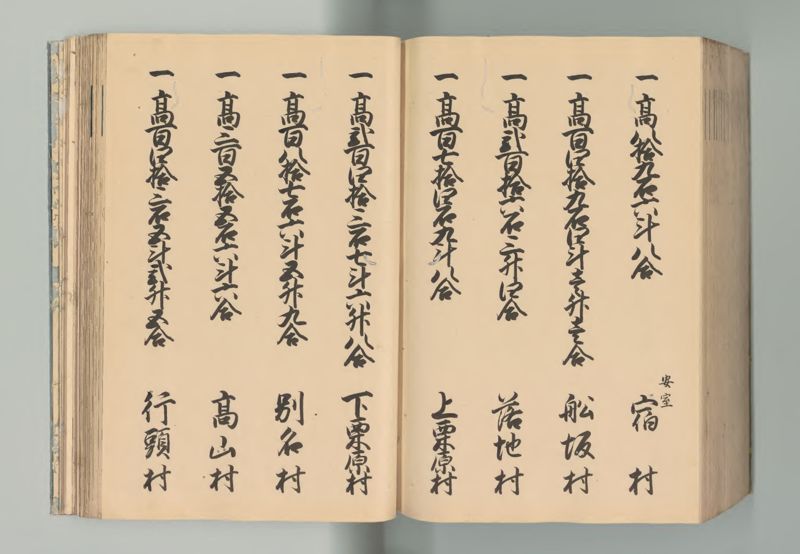 一 高八拾九石六斗八合 安室 宿村
一 高百四拾九石四斗壱升壱合 船坂村
一 高弐百拾六石三升四合 落地村
一 高百七拾四石九斗八合 上栗原村
一 高弐百四拾三石七斗六升八合 下栗原村
一 高百八拾七石六斗五升九合 別名村
一 高三百五拾五石六斗六合 高山村
一 高百四拾三石五斗弐升五合 行頭村